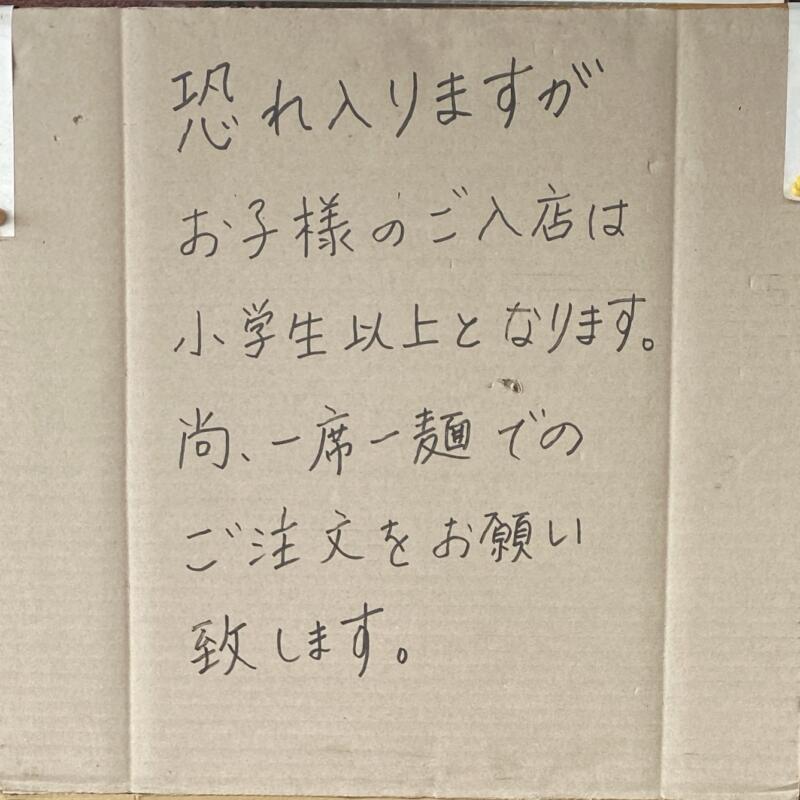 恐れ入りますが
お子様のご入店は
小学生以上となります。
尚、一席一麺での
ご注文をお願い
致します。